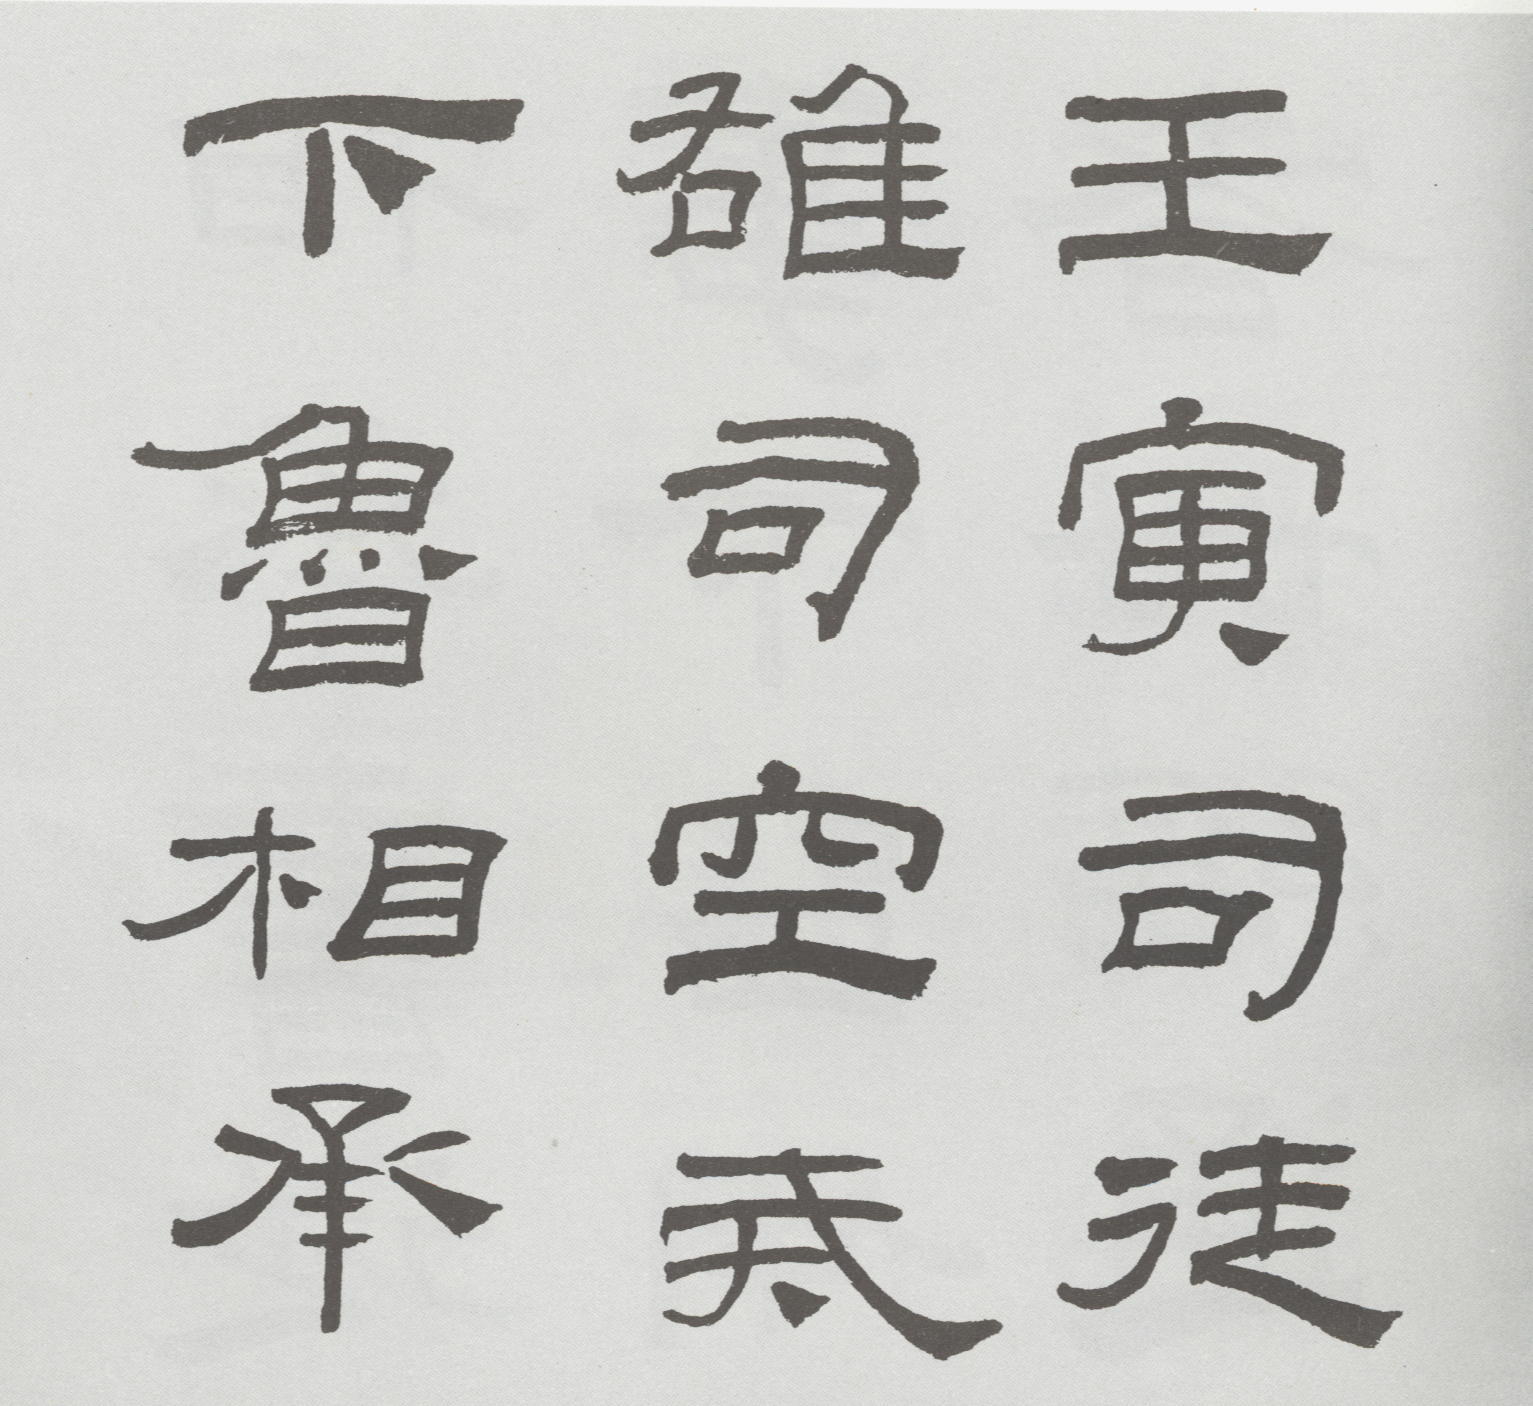 壬寅司徒
雄司空戒
下魯相承